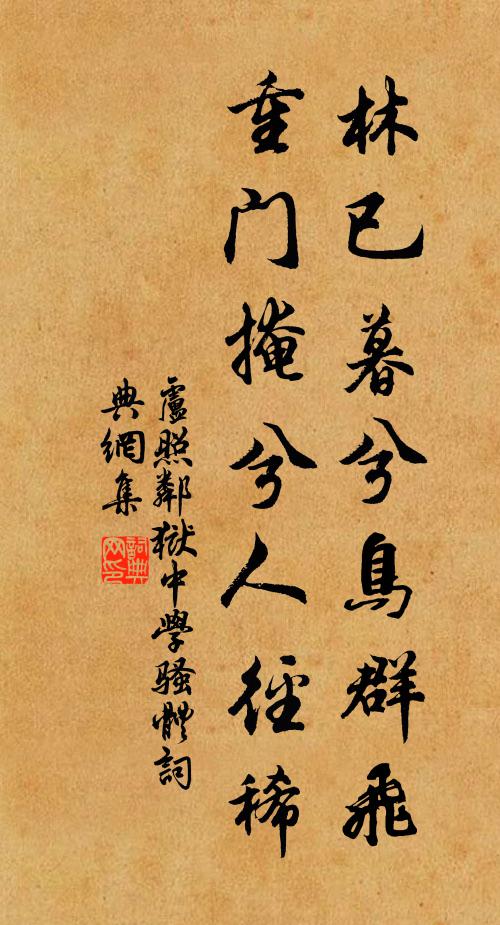 林已暮兮鳥群飛
重門掩兮人徑稀
盧照鄰獄中學騷體詞
典網集
詞典網印